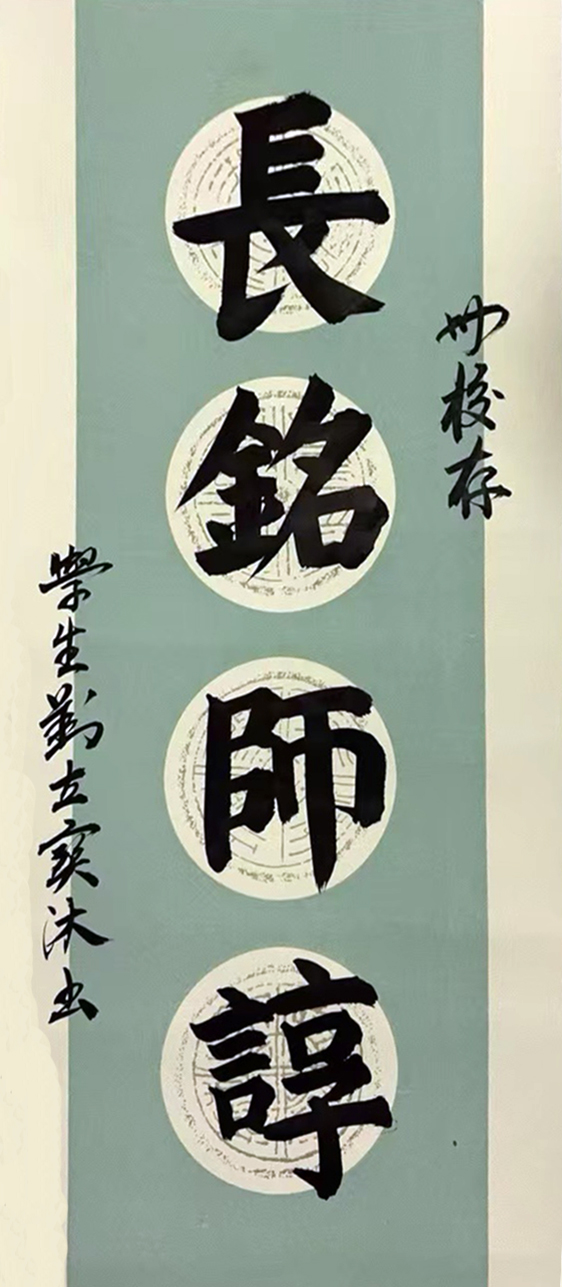 母校存
長銘師諄
學生劉立寶沐书